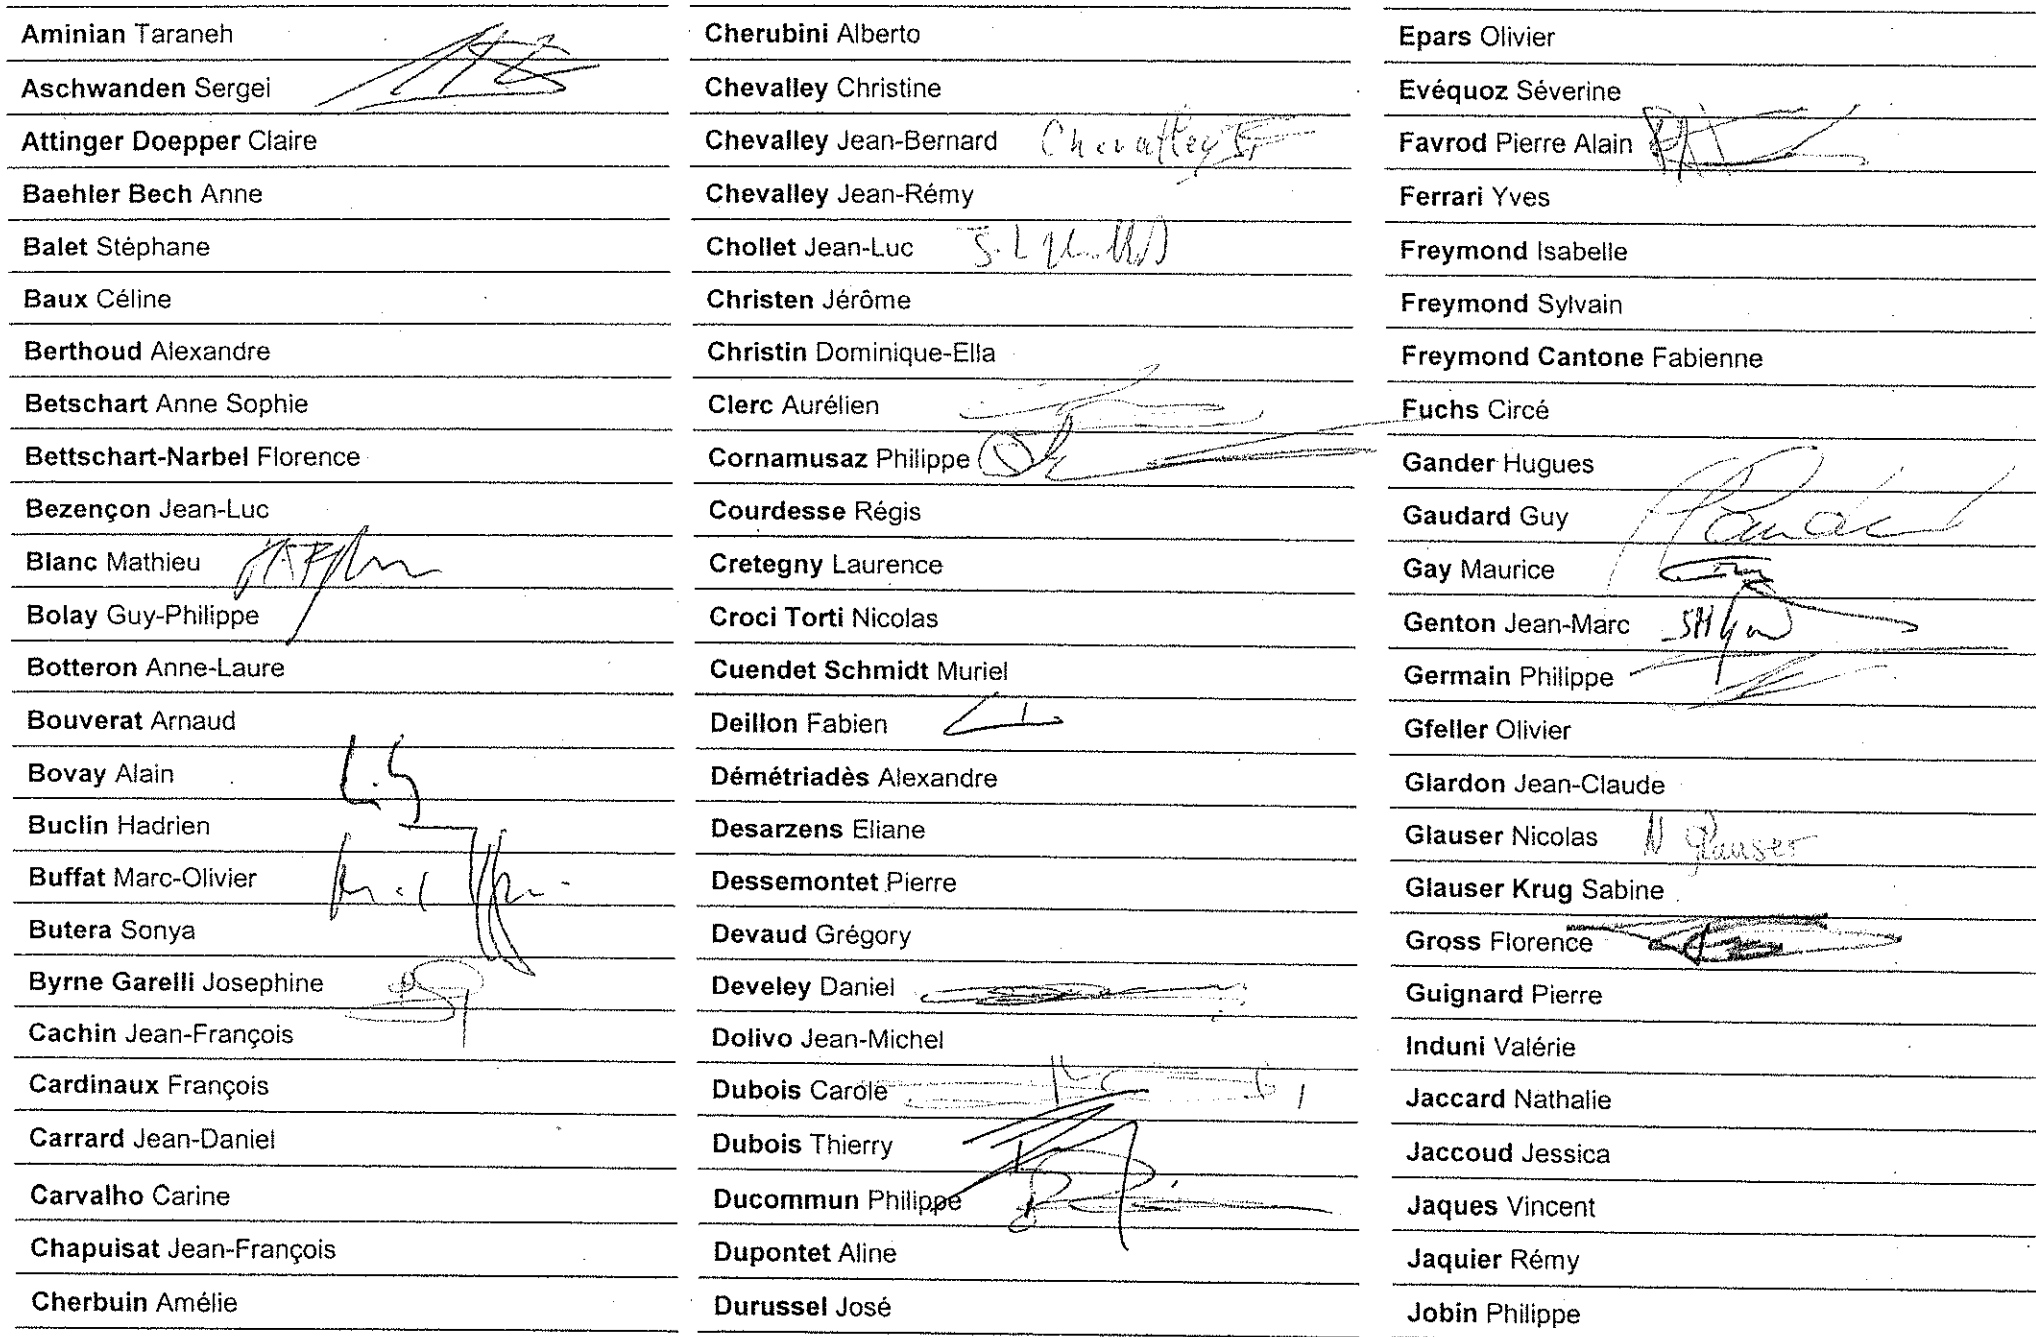 Aminian Taraneh
Aschwanden Sergei
Attinger Doepper Claire
Baehler Bech Anne
Balet Stéphane
Baux Céline
Berthoud Alexandre
Betschart Anne Sophie
Bettschart-Narbel Florence
Bezençon Jean-Luc
Blanc Mathieu
Bolay Guy-Philippe
Botteron Anne-Laure
Bouverat Arnaud
Bovay Alain
Buclin Hadrien
Buffat Marc-Olivier
Butera Sonya
Byrne Garelli Josephine
Cachin Jean-François
Cardinaux François
Carrard Jean-Daniel
Carvalho Carine
Chapuisat Jean-François
Cherbuin Amélie
Cherubini Alberto
Chevalley Christine
Chevalley Jean-Bernard Chevalley
Chevalley Jean-Rémy
Chollet Jean-Luc
Christen Jérôme
Christin Dominique-Ella
Clerc Aurélien
Cornamusaz Philippe
Courdesse Régis
Cretegny Laurence
Croci Torti Nicolas
Cuendet Schmidt Muriel
Deillon Fabien
Démétriadès Alexandre
Desarzens Eliane
Dessemontet Pierre
Devaud Grégory
Develey Daniel
Dolivo Jean-Michel
Dubois Carole
Dubois Thierry
Ducommun Philippe
Dupontet Aline
Durussel José
Epars Olivier
Evéquoz Séverine
Favrod Pierre Alain
Ferrari Yves
Freymond Isabelle
Freymond Sylvain
Freymond Cantone Fabienne
Fuchs Circé
Gander Hugues
Gaudard Guy
Gay Maurice
Genton Jean-Marc
Germain Philippe
Gfeller Olivier
Glardon Jean-Claude
Glauser Nicolas N Glauser
Glauser Krug Sabine
Gross Florence
Guignard Pierre
Induni Valérie
Jaccard Nathalie
Jaccoud Jessica
Jaques Vincent
Jaquier Rémy
Jobin Philippe